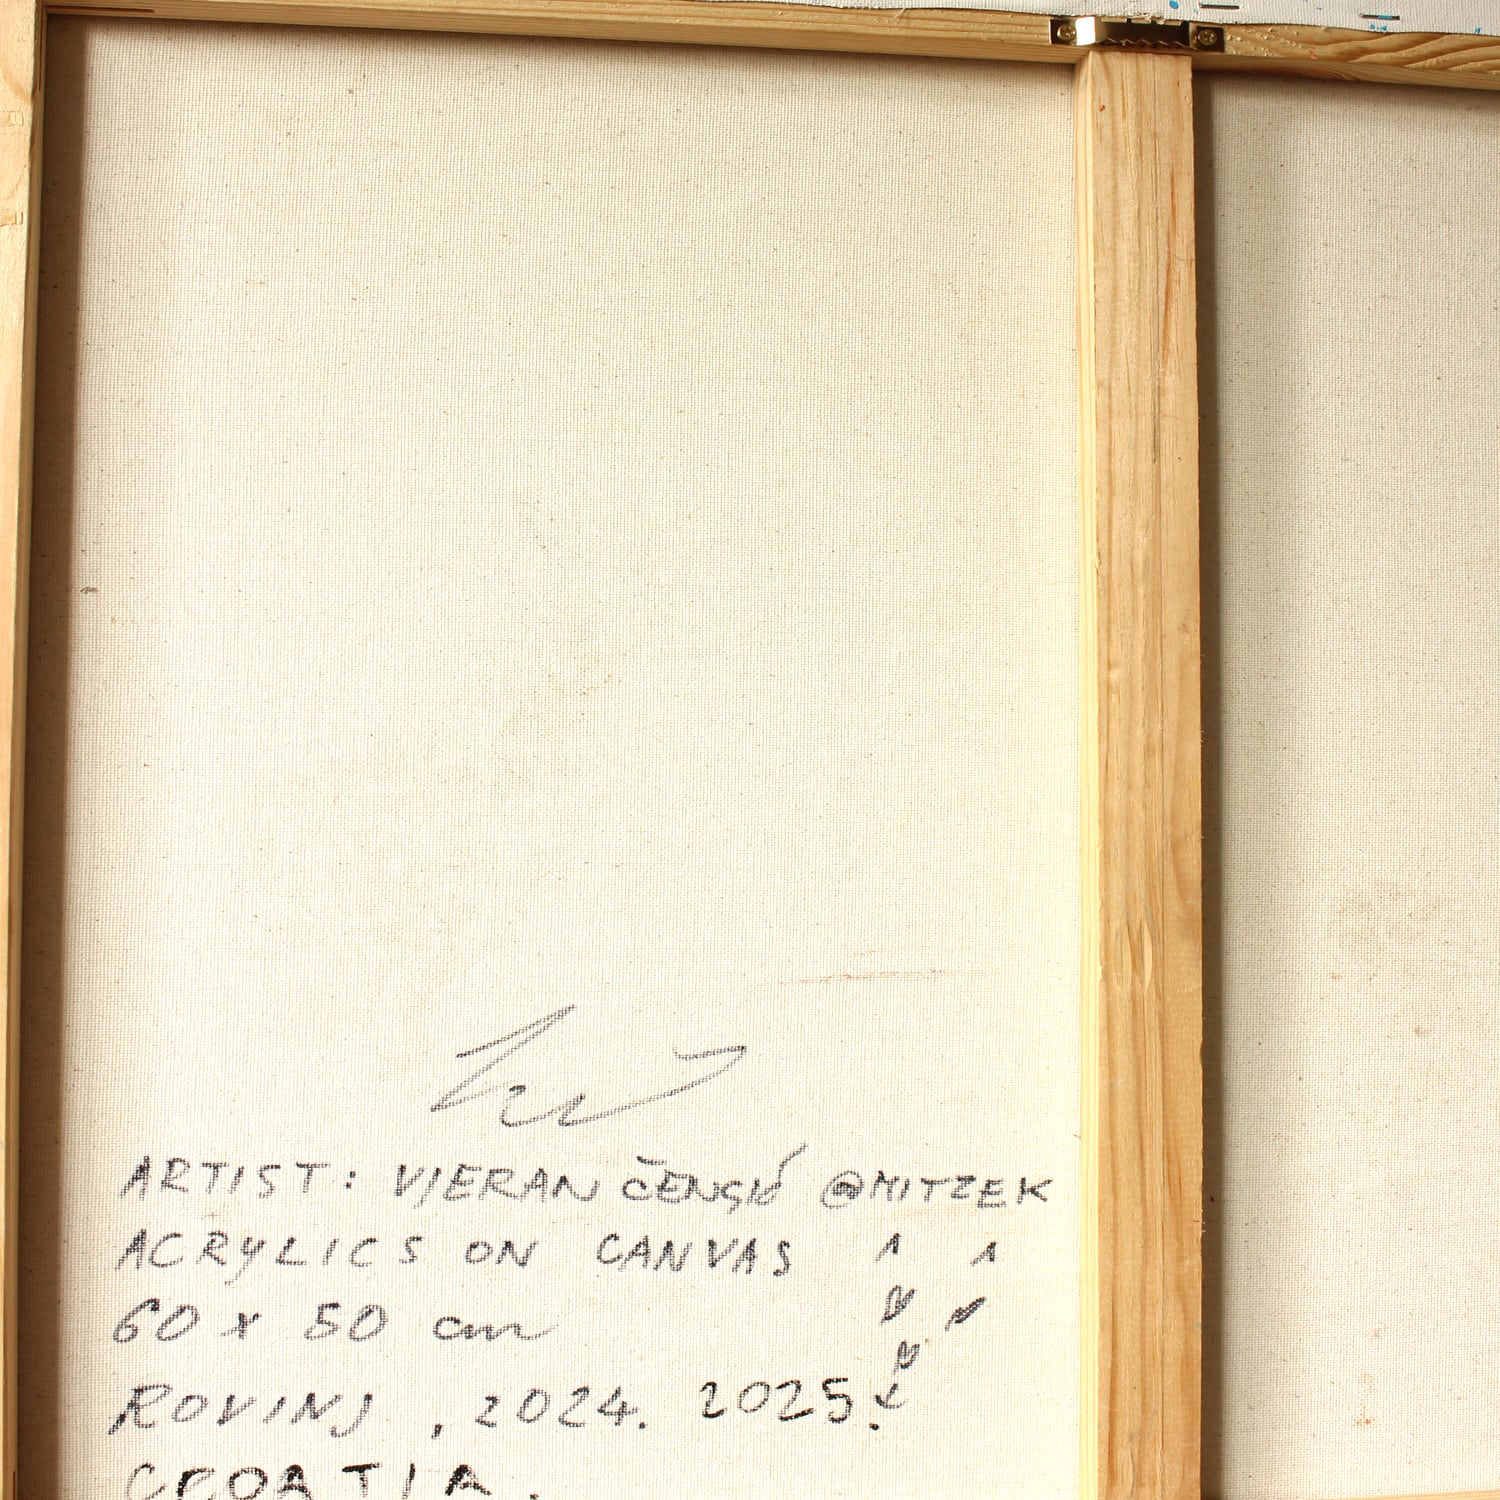 ARTIST: VJERAN ČENGIĆ @MITZEK
ACRYLICS ON CANVAS
60 x 50 cm
ROVINJ, 2024. 2025.
CROATIA.